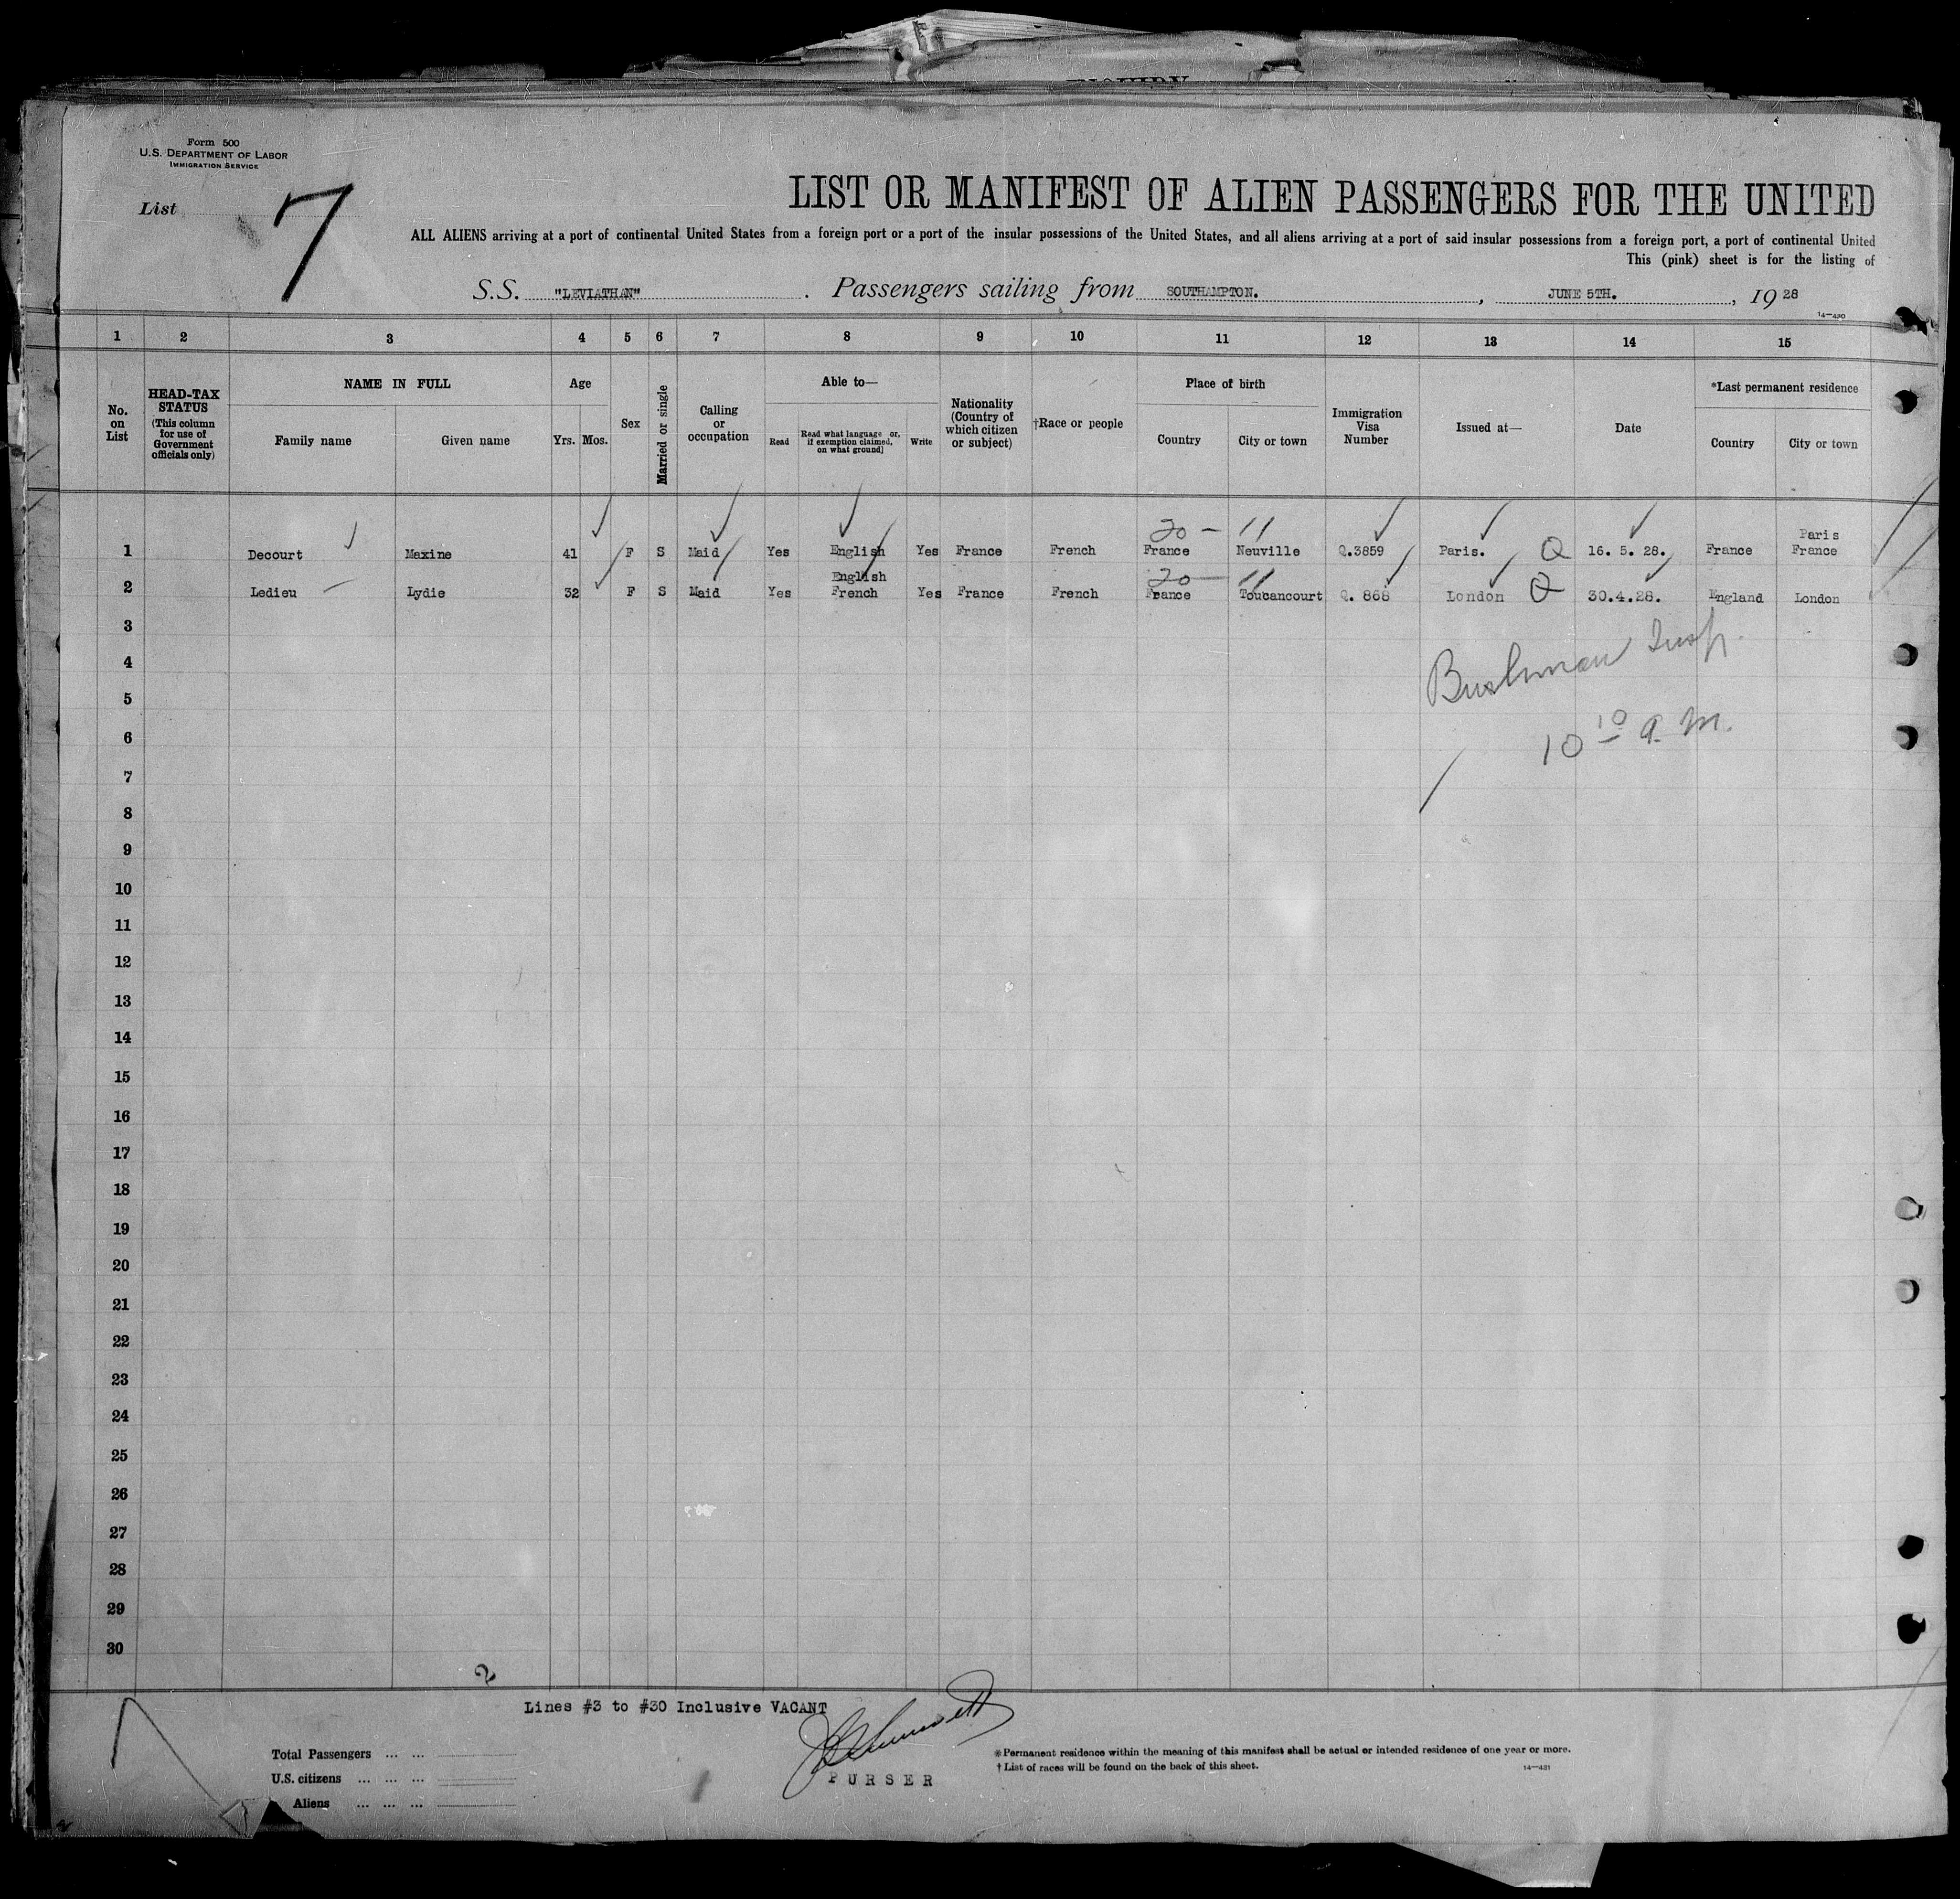 INQUIRY
Form 500
U.S. DEPARTMENT OF LABOR
IMMIGRATION SERVICE
List 7
LIST OR MANIFEST OF ALIEN PASSENGERS FOR THE UNITED
ALL ALIENS arriving at a port of continental United States from a foreign port or a port of the insular possessions of the United States, and all aliens arriving at a port of said insular possessions from a foreign port, a port of continental United
This (pink) sheet is for the listing of
S.S. "LEVIATHAN" . Passengers sailing from SOUTHAMPTON. , JUNE 5TH. , 1928
14—430
1 2 3 4 5 6 7 8 9 10 11 12 13 14 15
No. on List
HEAD-TAX STATUS
(This column for use of Government officials only)
NAME IN FULL
Family name Given name
Age
Yrs. Mos.
Sex
Married or single
Calling or occupation
Able to—
Read
Read what language or, if exemption claimed, on what ground
Write
Nationality (Country of which citizen or subject)
†Race or people
Place of birth
Country City or town
Immigration Visa Number
Issued at—
Date
*Last permanent residence
Country City or town
20 — 11
Paris
1 Decourt Maxine 41 F S Maid Yes English Yes France French France Neuville Q.3859 Paris. Q 16. 5. 28. France France
English 20 — 11
2 Ledieu Lydie 32 F S Maid Yes French Yes France French France Toutancourt Q. 868 London Q 30.4.28. England London
3
Bushman Insp.
4
5
6
10 10 A.M.
7
8
9
10
11
12
13
14
15
16
17
18
19
20
21
22
23
24
25
26
27
28
29
30
2
Lines #3 to #30 Inclusive VACANT
Total Passengers ... ...
U.S. citizens ... ... ...
Aliens ... ... ...
PURSER
*Permanent residence within the meaning of this manifest shall be actual or intended residence of one year or more.
† List of races will be found on the back of this sheet.
14—431